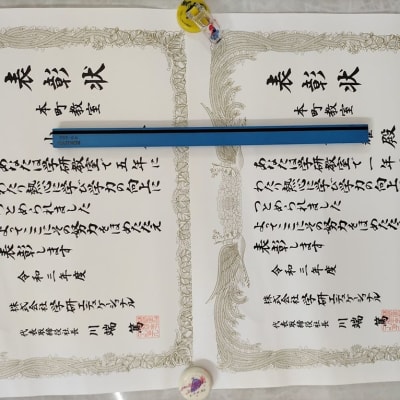 表彰状
本町教室
あなたは学研教室で五年に
わたり熱心に学び学力の向上に
つとめられました
よってここにその努力をほめたたえ
表彰します
令和三年度
株式会社学研エデュケーショナル
代表取締役社長 川端 篤
表彰状
本町教室
殿
あなたは学研教室で一年
わたり熱心に学び学力の向上
つとめられました
よってここにその努力をほめたたえ
表彰します
令和三年度
株式会社学研エデュケーショナル
代表取締役社長 川端 篤